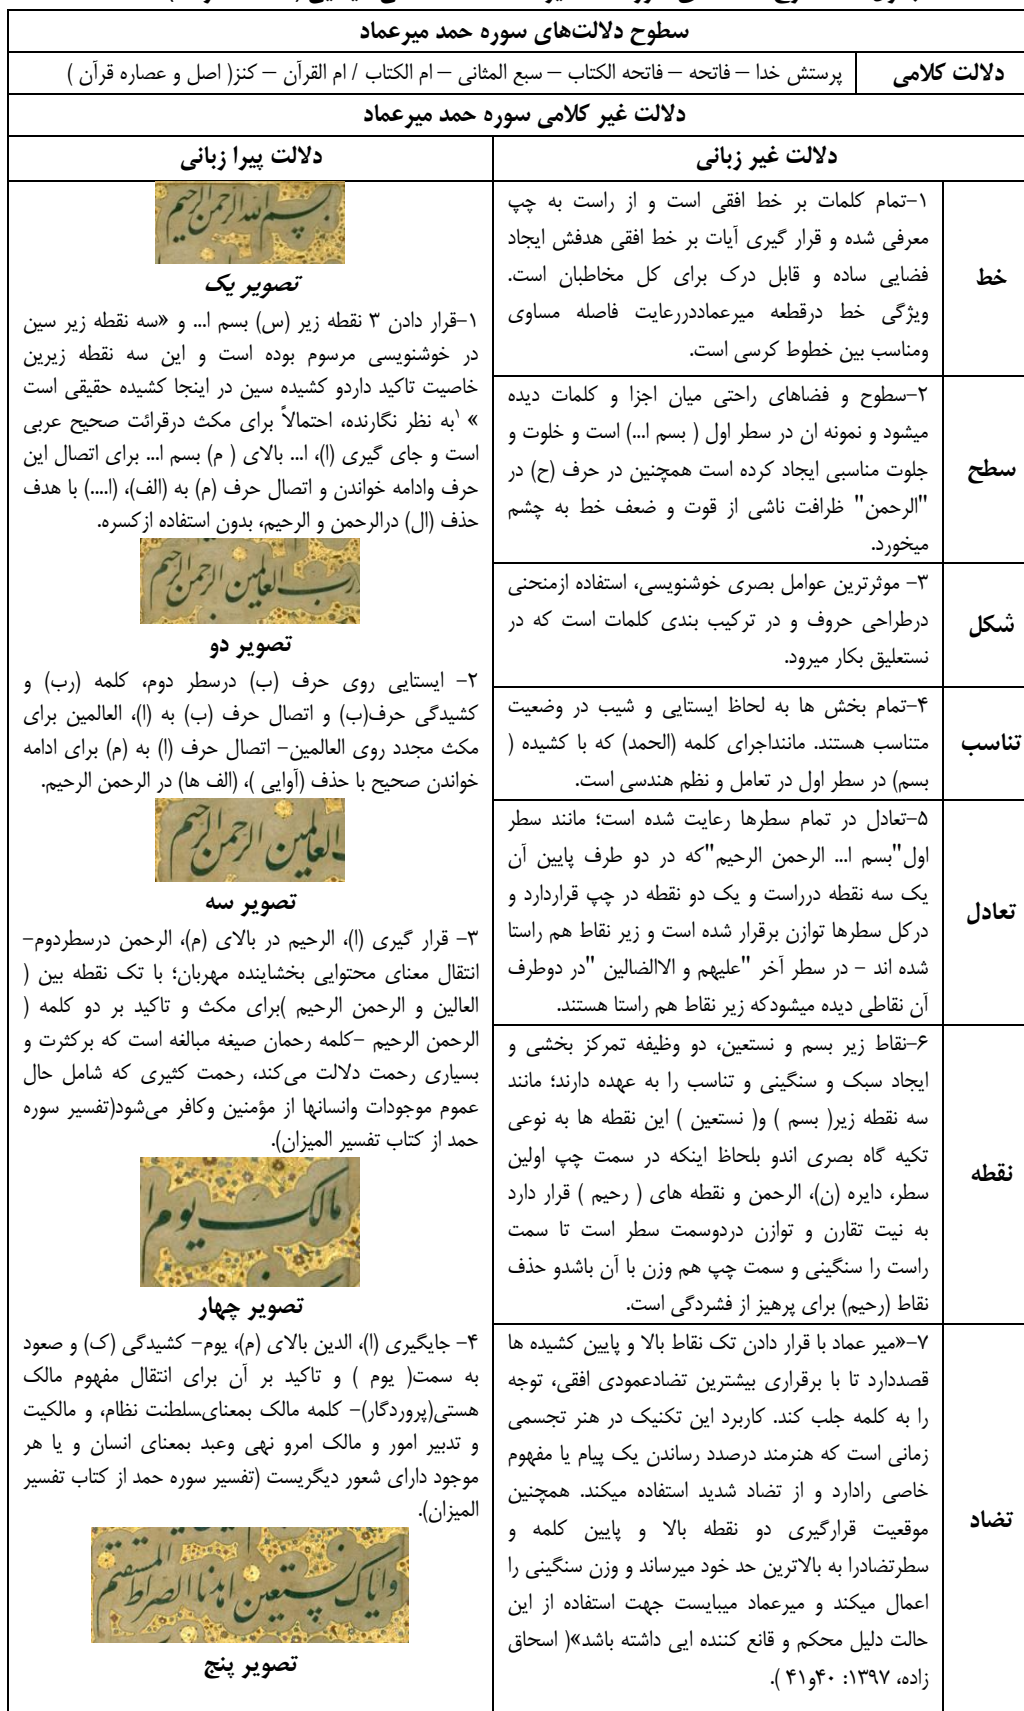 سطوح دلالت‌های سوره حمد میرعماد
دلالت کلامی
پرستش خدا – فاتحه – فاتحه الکتاب – سبع المثانی – ام الکتاب / ام القرآن – کنز( اصل و عصاره قرآن )
دلالت غیر کلامی سوره حمد میرعماد
دلالت غیر زبانی
دلالت پیرا زبانی
خط
۱-تمام کلمات بر خط افقی است و از راست به چپ
معرفی شده و قرار گیری آیات بر خط افقی هدفش ایجاد
فضایی ساده و قابل درک برای کل مخاطبان است.
ویژگی خط درقطعه میرعماددررعایت فاصله مساوی
ومناسب بین خطوط کرسی است.
سطح
۲-سطوح و فضاهای راحتی میان اجزا و کلمات دیده
میشود و نمونه ان در سطر اول ( بسم ا...) است و خلوت و
جلوت مناسبی ایجاد کرده است همچنین در حرف (ح) در
"الرحمن" ظرافت ناشی از قوت و ضعف خط به چشم
میخورد.
شکل
۳- موثرترین عوامل بصری خوشنویسی، استفاده ازمنحنی
درطراحی حروف و در ترکیب بندی کلمات است که در
نستعلیق بکار میرود.
تناسب
۴-تمام بخش ها به لحاظ ایستایی و شیب در وضعیت
متناسب هستند. ماننداجرای کلمه (الحمد) که با کشیده (
بسم) در سطر اول در تعامل و نظم هندسی است.
تعادل
۵-تعادل در تمام سطرها رعایت شده است؛ مانند سطر
اول"بسم ا... الرحمن الرحیم"که در دو طرف پایین آن
یک سه نقطه درراست و یک دو نقطه در چپ قراردارد و
درکل سطرها توازن برقرار شده است و زیر نقاط هم راستا
شده اند – در سطر آخر "علیهم و الاالضالین "در دوطرف
آن نقاطی دیده میشودکه زیر نقاط هم راستا هستند.
نقطه
۶-نقاط زیر بسم و نستعین، دو وظیفه تمرکز بخشی و
ایجاد سبک و سنگینی و تناسب را به عهده دارند؛ مانند
سه نقطه زیر( بسم ) و( نستعین ) این نقطه ها به نوعی
تکیه گاه بصری اندو بلحاظ اینکه در سمت چپ اولین
سطر، دایره (ن)، الرحمن و نقطه های ( رحیم ) قرار دارد
به نیت تقارن و توازن دردوسمت سطر است تا سمت
راست را سنگینی و سمت چپ هم وزن با آن باشدو حذف
نقاط (رحیم) برای پرهیز از فشردگی است.
تضاد
۷-«میر عماد با قرار دادن تک نقاط بالا و پایین کشیده ها
قصددارد تا با برقراری بیشترین تضادعمودی افقی، توجه
را به کلمه جلب کند. کاربرد این تکنیک در هنر تجسمی
زمانی است که هنرمند درصدد رساندن یک پیام یا مفهوم
خاصی رادارد و از تضاد شدید استفاده میکند. همچنین
موقعیت قرارگیری دو نقطه بالا و پایین کلمه و
سطرتضادرا به بالاترین حد خود میرساند و وزن سنگینی را
اعمال میکند و میرعماد میبایست جهت استفاده از این
حالت دلیل محکم و قانع کننده ایی داشته باشد»( اسحاق
زاده، ۱۳۹۷: ۴۰و۴۱ ).
بسم الله الرحمن الرحیم
تصویر یک
۱-قرار دادن ۳ نقطه زیر (س) بسم ا... و «سه نقطه زیر سین
در خوشنویسی مرسوم بوده است و این سه نقطه زیرین
خاصیت تاکید داردو کشیده سین در اینجا کشیده حقیقی است
» ۱به نظر نگارنده، احتمالاً برای مکث درقرائت صحیح عربی
است و جای گیری (ا)، ا... بالای ( م) بسم ا... برای اتصال این
حرف وادامه خواندن و اتصال حرف (م) به (الف)، (ا....) با هدف
حذف (ال) درالرحمن و الرحیم، بدون استفاده ازکسره.
رب العالمین الرحمن الرحیم
تصویر دو
۲- ایستایی روی حرف (ب) درسطر دوم، کلمه (رب) و
کشیدگی حرف(ب) و اتصال حرف (ب) به (ا)، العالمین برای
مکث مجدد روی العالمین- اتصال حرف (ا) به (م) برای ادامه
خواندن صحیح با حذف (آوایی )، (الف ها) در الرحمن الرحیم.
العالمین الرحمن الرحیم
تصویر سه
۳- قرار گیری (ا)، الرحیم در بالای (م)، الرحمن درسطردوم-
انتقال معنای محتوایی بخشاینده مهربان؛ با تک نقطه بین (
العالین و الرحمن الرحیم )برای مکث و تاکید بر دو کلمه (
الرحمن الرحیم -کلمه رحمان صیغه مبالغه است که برکثرت و
بسیاری رحمت دلالت می‌کند، رحمت کثیری که شامل حال
عموم موجودات وانسانها از مؤمنین وکافر می‌شود(تفسیر سوره
حمد از کتاب تفسیر المیزان).
مالک یوم ا
تصویر چهار
۴- جایگیری (ا)، الدین بالای (م)، یوم- کشیدگی (ک) و صعود
به سمت( یوم ) و تاکید بر آن برای انتقال مفهوم مالک
هستی(پروردگار)- کلمه مالک بمعنای‌سلطنت نظام، و مالکیت
و تدبیر امور و مالک امرو نهی وعبد بمعنای انسان و یا هر
موجود دارای شعور دیگریست (تفسیر سوره حمد از کتاب تفسیر
المیزان).
وایاک نستعین اهدنا الصراط المستقیم
تصویر پنج